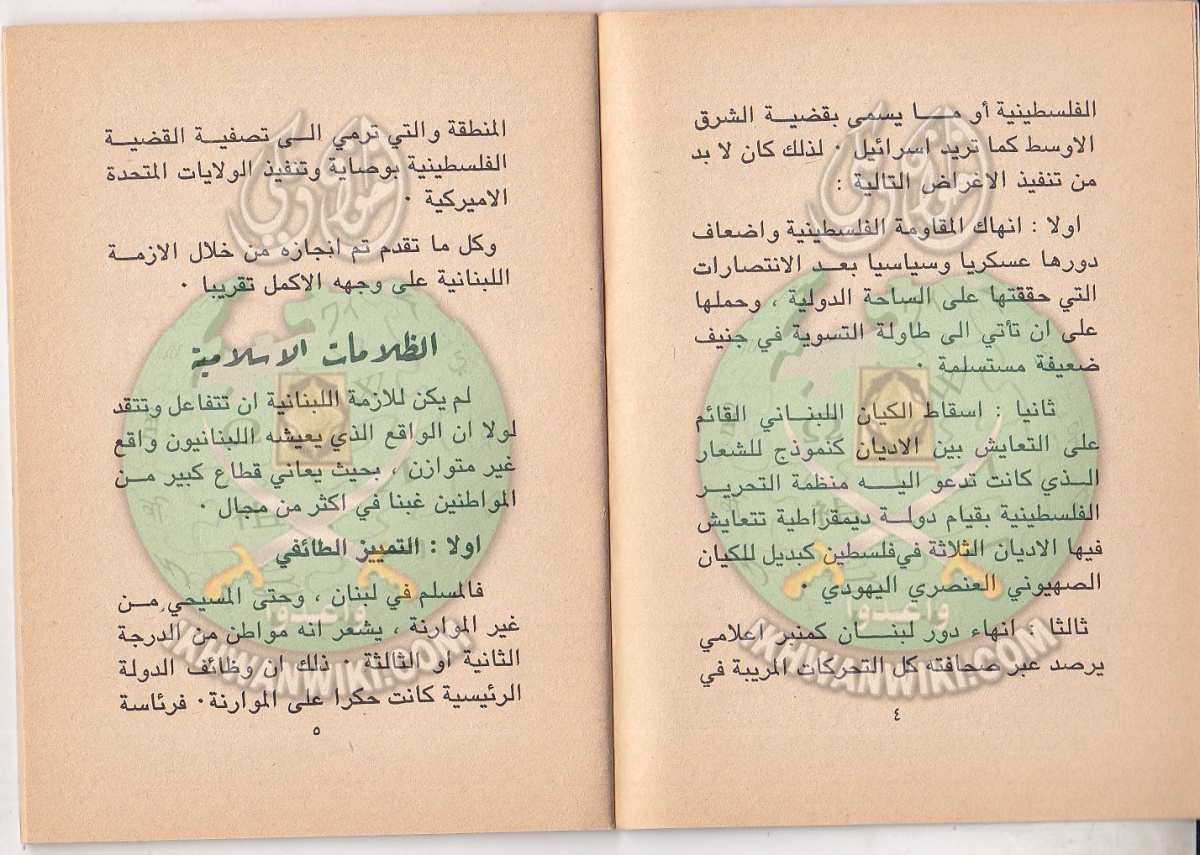 الفلسطينية أو مـــا يسمى بقضية الشرق
الاوسط كما تريد اسرائيل ٠ لذلك كان لا بد
من تنفيذ الاغراض التالية :
اولا : انهاك المقاومة الفلسطينية واضعاف
دورها عسكريا وسياسيا بعـد الانتصارات
التي حققتها على الساحة الدولية ، وحملها
على ان تأتي الى طاولة التسوية في جنيف
ضعيفة مستسلمة ٠
ثانيا : اسقاط الكيان اللبنـاني القائم
على التعايش بين الاديان كنموذج للشعار
الـذي كانت تدعو اليـه منظمة التحريـر
الفلسطينية بقيام دولـة ديمقراطية تتعايش
فيها الاديان الثلاثة في فلسطين كبديل للكيان
الصهيوني العنصري اليهودي ٠
ثالثا : انهاء دور لبنـــان كمنبر اعلامي
يرصد عبر صحافته كل التحركات المريبة في
٤
المنطقة والتي ترمي الـى تصفيـة القضيـة
الفلسطينية بوصاية وتنفيذ الولايات المتحدة
الاميركية ٠
وكل ما تقدم تم انجازه من خلال الازمـة
اللبنانية على وجهه الاكمل تقريبا ٠
الظلامات الاسلامية
لم يكن للازمة اللبنانية ان تتفاعل وتتقد
لولا ان الواقع الذي يعيشه اللبنانيون واقع
غير متوازن ، بحيث يعاني قطاع كبير مـن
المواطنين غبنا في اكثر من مجال ٠
اولا : التمييز الطائفي
فالمسلم في لبنان ، وحتى المسيحي مـن
غير الموارنة ، يشعر انه مواطن من الدرجة
الثانية او الثالثة ٠ ذلك ان وظائف الدولة
الرئيسية كانت حكرا على الموارنة٠ فرئاسة
٥
وأعدوا
IKHWANWIKI.COM
وأعدوا
IKHWANWIKI.COM